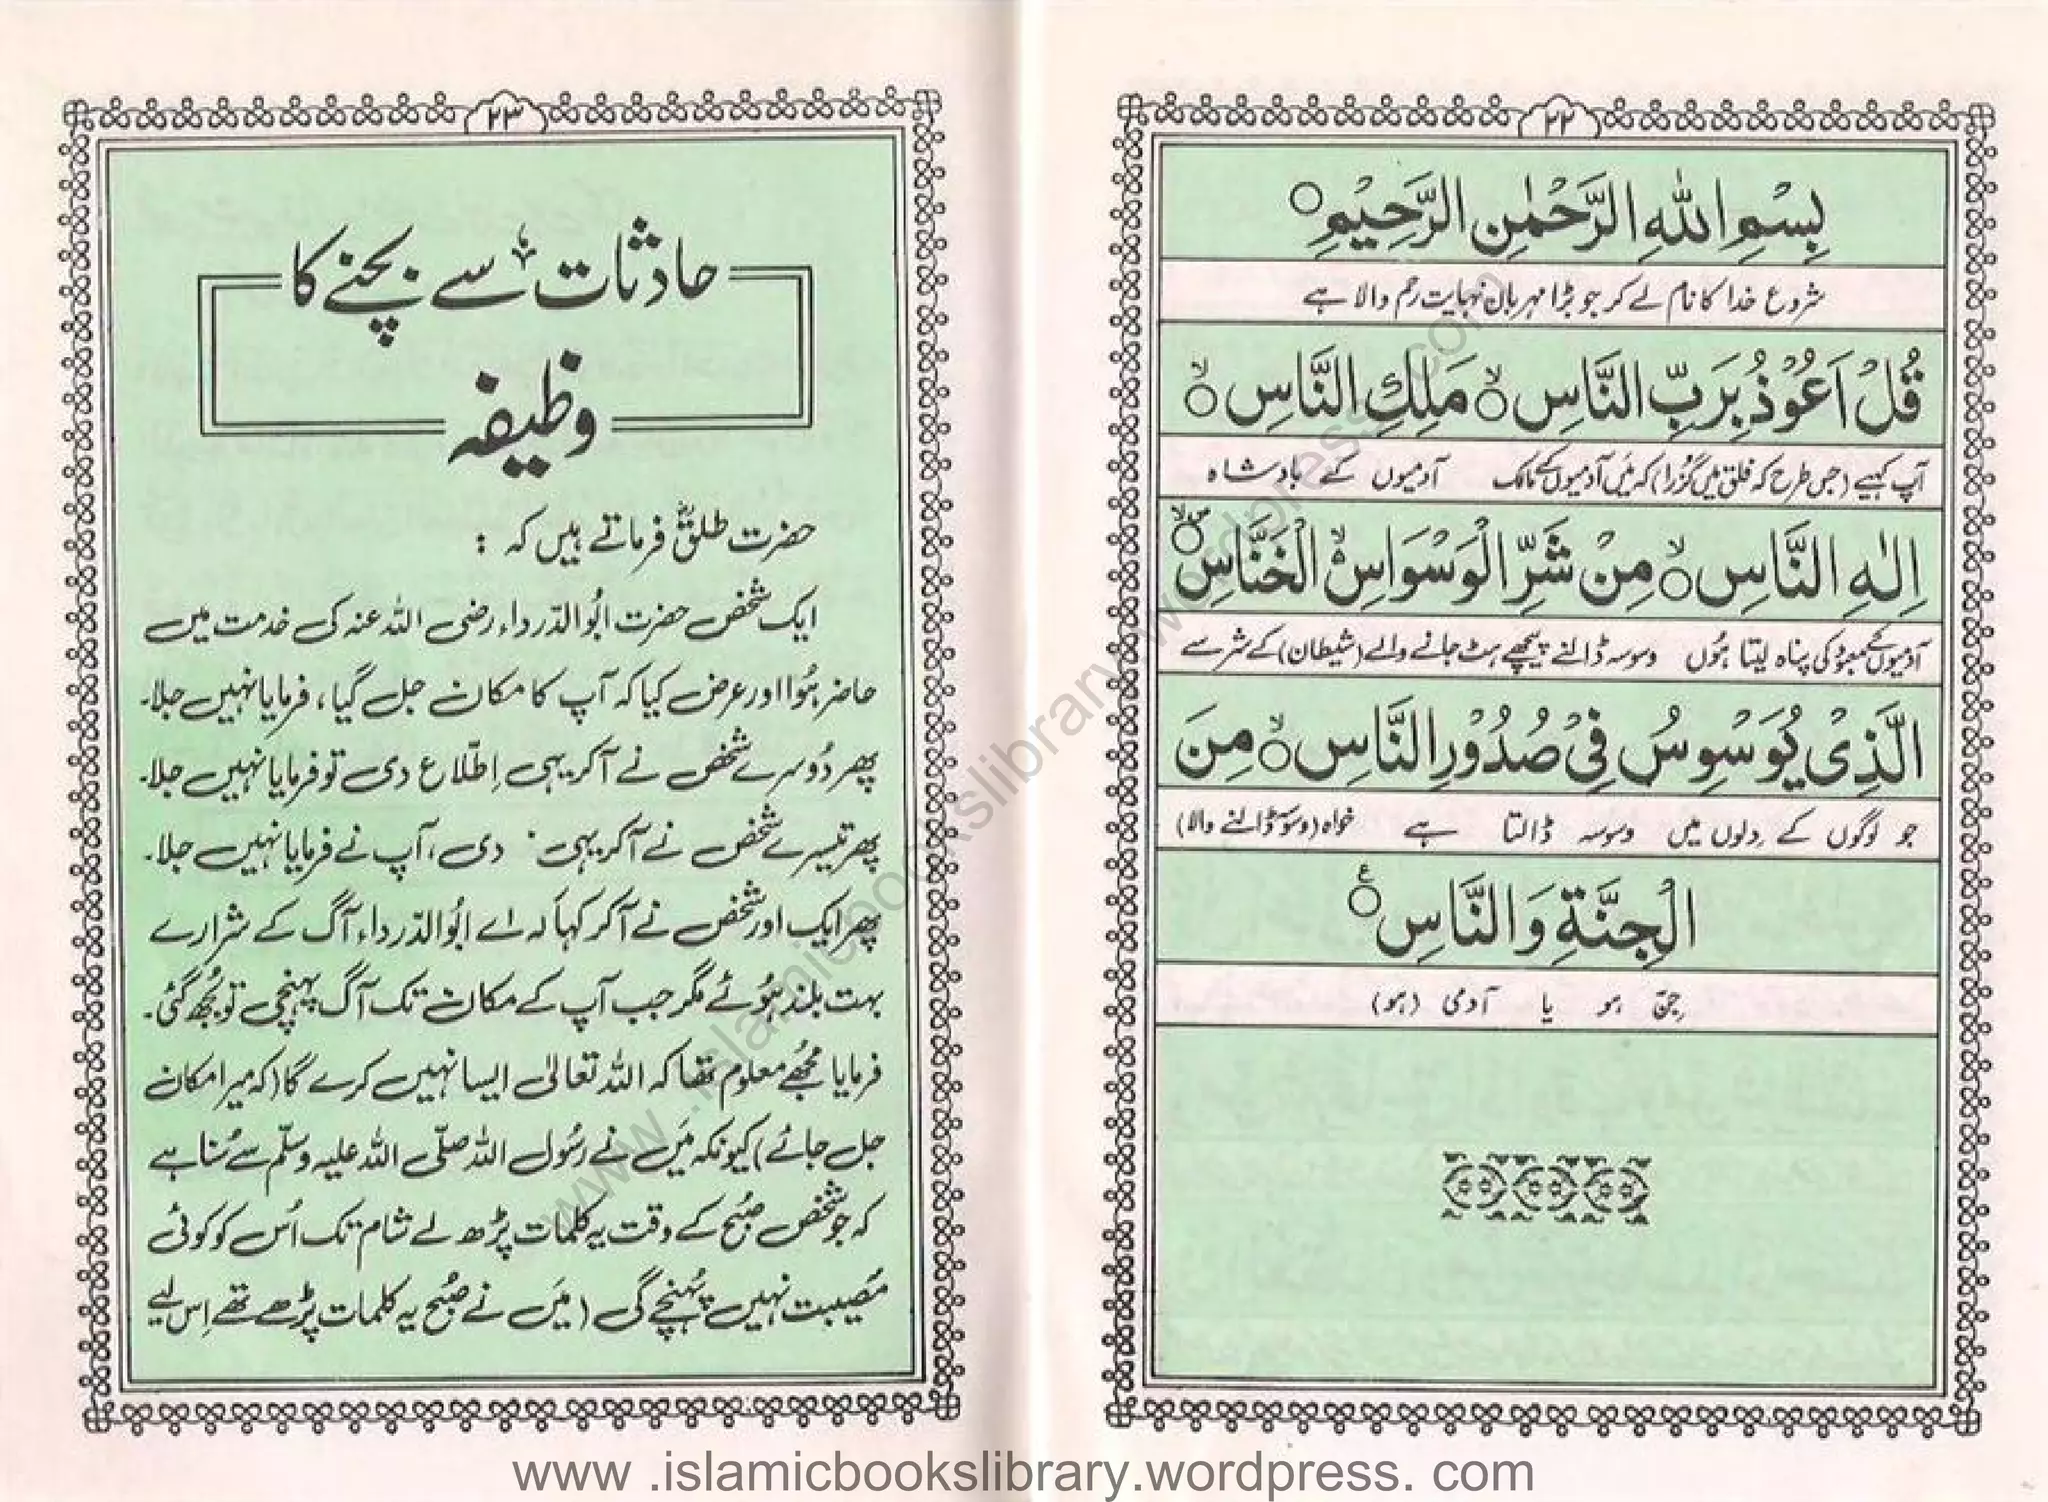 ۲۲
بِسْمِ اللهِ الرَّحْمٰنِ الرَّحِيْمِ ○
شروع خدا کا نام لے کر جو بڑا مہربان نہایت رحم والا ہے
قُلْ اَعُوْذُ بِرَبِّ النَّاسِ ○ۙ مَلِكِ النَّاسِ ○ۙ
آپ کہیے (جس طرح کہ فلق میں گزرا) کہ میں آدمیوں کے مالک آدمیوں کے بادشاہ
اِلٰهِ النَّاسِ ○ۙ مِنْ شَرِّ الْوَسْوَاسِ ۙ الْخَنَّاسِ ○ۙ
آدمیوں کے معبود کی پناہ لیتا ہوں وسوسہ ڈالنے پیچھے ہٹ جانے والے (شیطان) کے شر سے
الَّذِىْ يُوَسْوِسُ فِىْ صُدُوْرِ النَّاسِ ○ۙ مِنَ
جو لوگوں کے دِلوں میں وسوسہ ڈالتا ہے خواہ (وسوسہ ڈالنے والا)
الْجِنَّةِ وَالنَّاسِ ○ع
جِنّ ہو یا آدمی (ہو)
۲۳
حادثات سے بچنے کا
وظیفہ
حضرت طلقؓ فرماتے ہیں کہ :
ایک شخص حضرت ابُوالدّرداء رضی اللہ عنہ کی خدمت میں
حاضر ہُوا اور عرض کیا کہ آپ کا مکان جل گیا، فرمایا نہیں جلا۔
پھر دُوسرے شخص نے آکر یہی اِطّلاع دی تو فرمایا نہیں جلا۔
پھر تیسرے شخص نے آکر یہی دی، آپ نے فرمایا نہیں جلا۔
پھر ایک اور شخص نے آکر کہا کہ اے ابُوالدّرداء آگ کے شرارے
بہت بلند ہُوئے مگر جب آپ کے مکان تک آگ پہنچی تو بُجھ گئی۔
فرمایا مُجھے معلوم تھا کہ اللہ تعالیٰ ایسا نہیں کرے گا (کہ میرا مکان
جل جائے) کیونکہ مَیں نے رسُول اللہ صلّی اللہ علیہ وسلّم سے سُنا ہے
کہ جو شخص صبُح کے وقت یہ کلمات پڑھ لے شام تک اُس کو کوئی
مصیبت نہیں پہُنچے گی (مَیں نے صبُح یہ کلمات پڑھے تھے اِس لیے
www .islamicbookslibrary.wordpress. com
www .islamicbookslibrary.wordpress. com